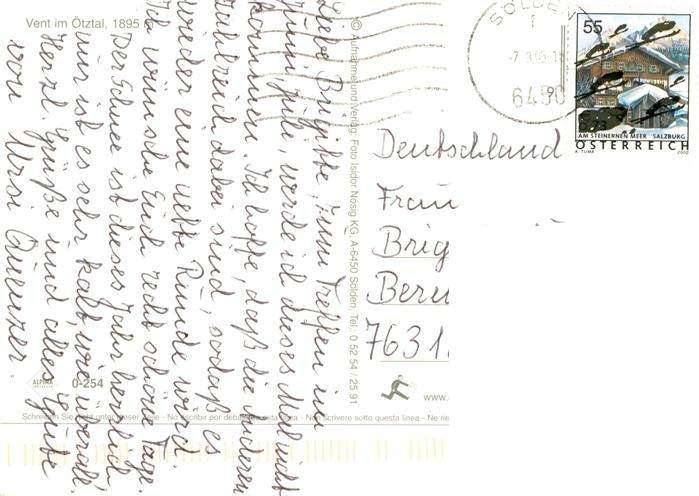 Vent im Ötztal, 1895 m
Liebe Brigitte, zum Treffen im
Juni/Juli, werde ich dieses Mal nicht
kommen. Ich hoffe, daß die anderen
zahlreich dabei sind, sodaß es
wieder eine nette Runde wird.
Ich wünsche Euch recht schöne Tage.
Der Schnee ist dieses Jahr herrlich
nur ist es sehr kalt, wie überall.
Herzl. Grüße und alles Gute
von Ursi
© Aufnahme und Verlag: Foto Isidor Nosig KG, A-6450 Sölden, Tel. 0 52 54 / 25 91
SÖLDEN
1
6450
55
AM STEINERNEN MEER SALZBURG
ÖSTERREICH
A. TUMA
2002
Deutschland
Frau
Brig
Bern
7631
www.
ALPINA
0-254
Schreiben Sie nicht unter dieser Linie - No escribir por debajo de esta línea - Non scrivere sotto questa linea - Ne